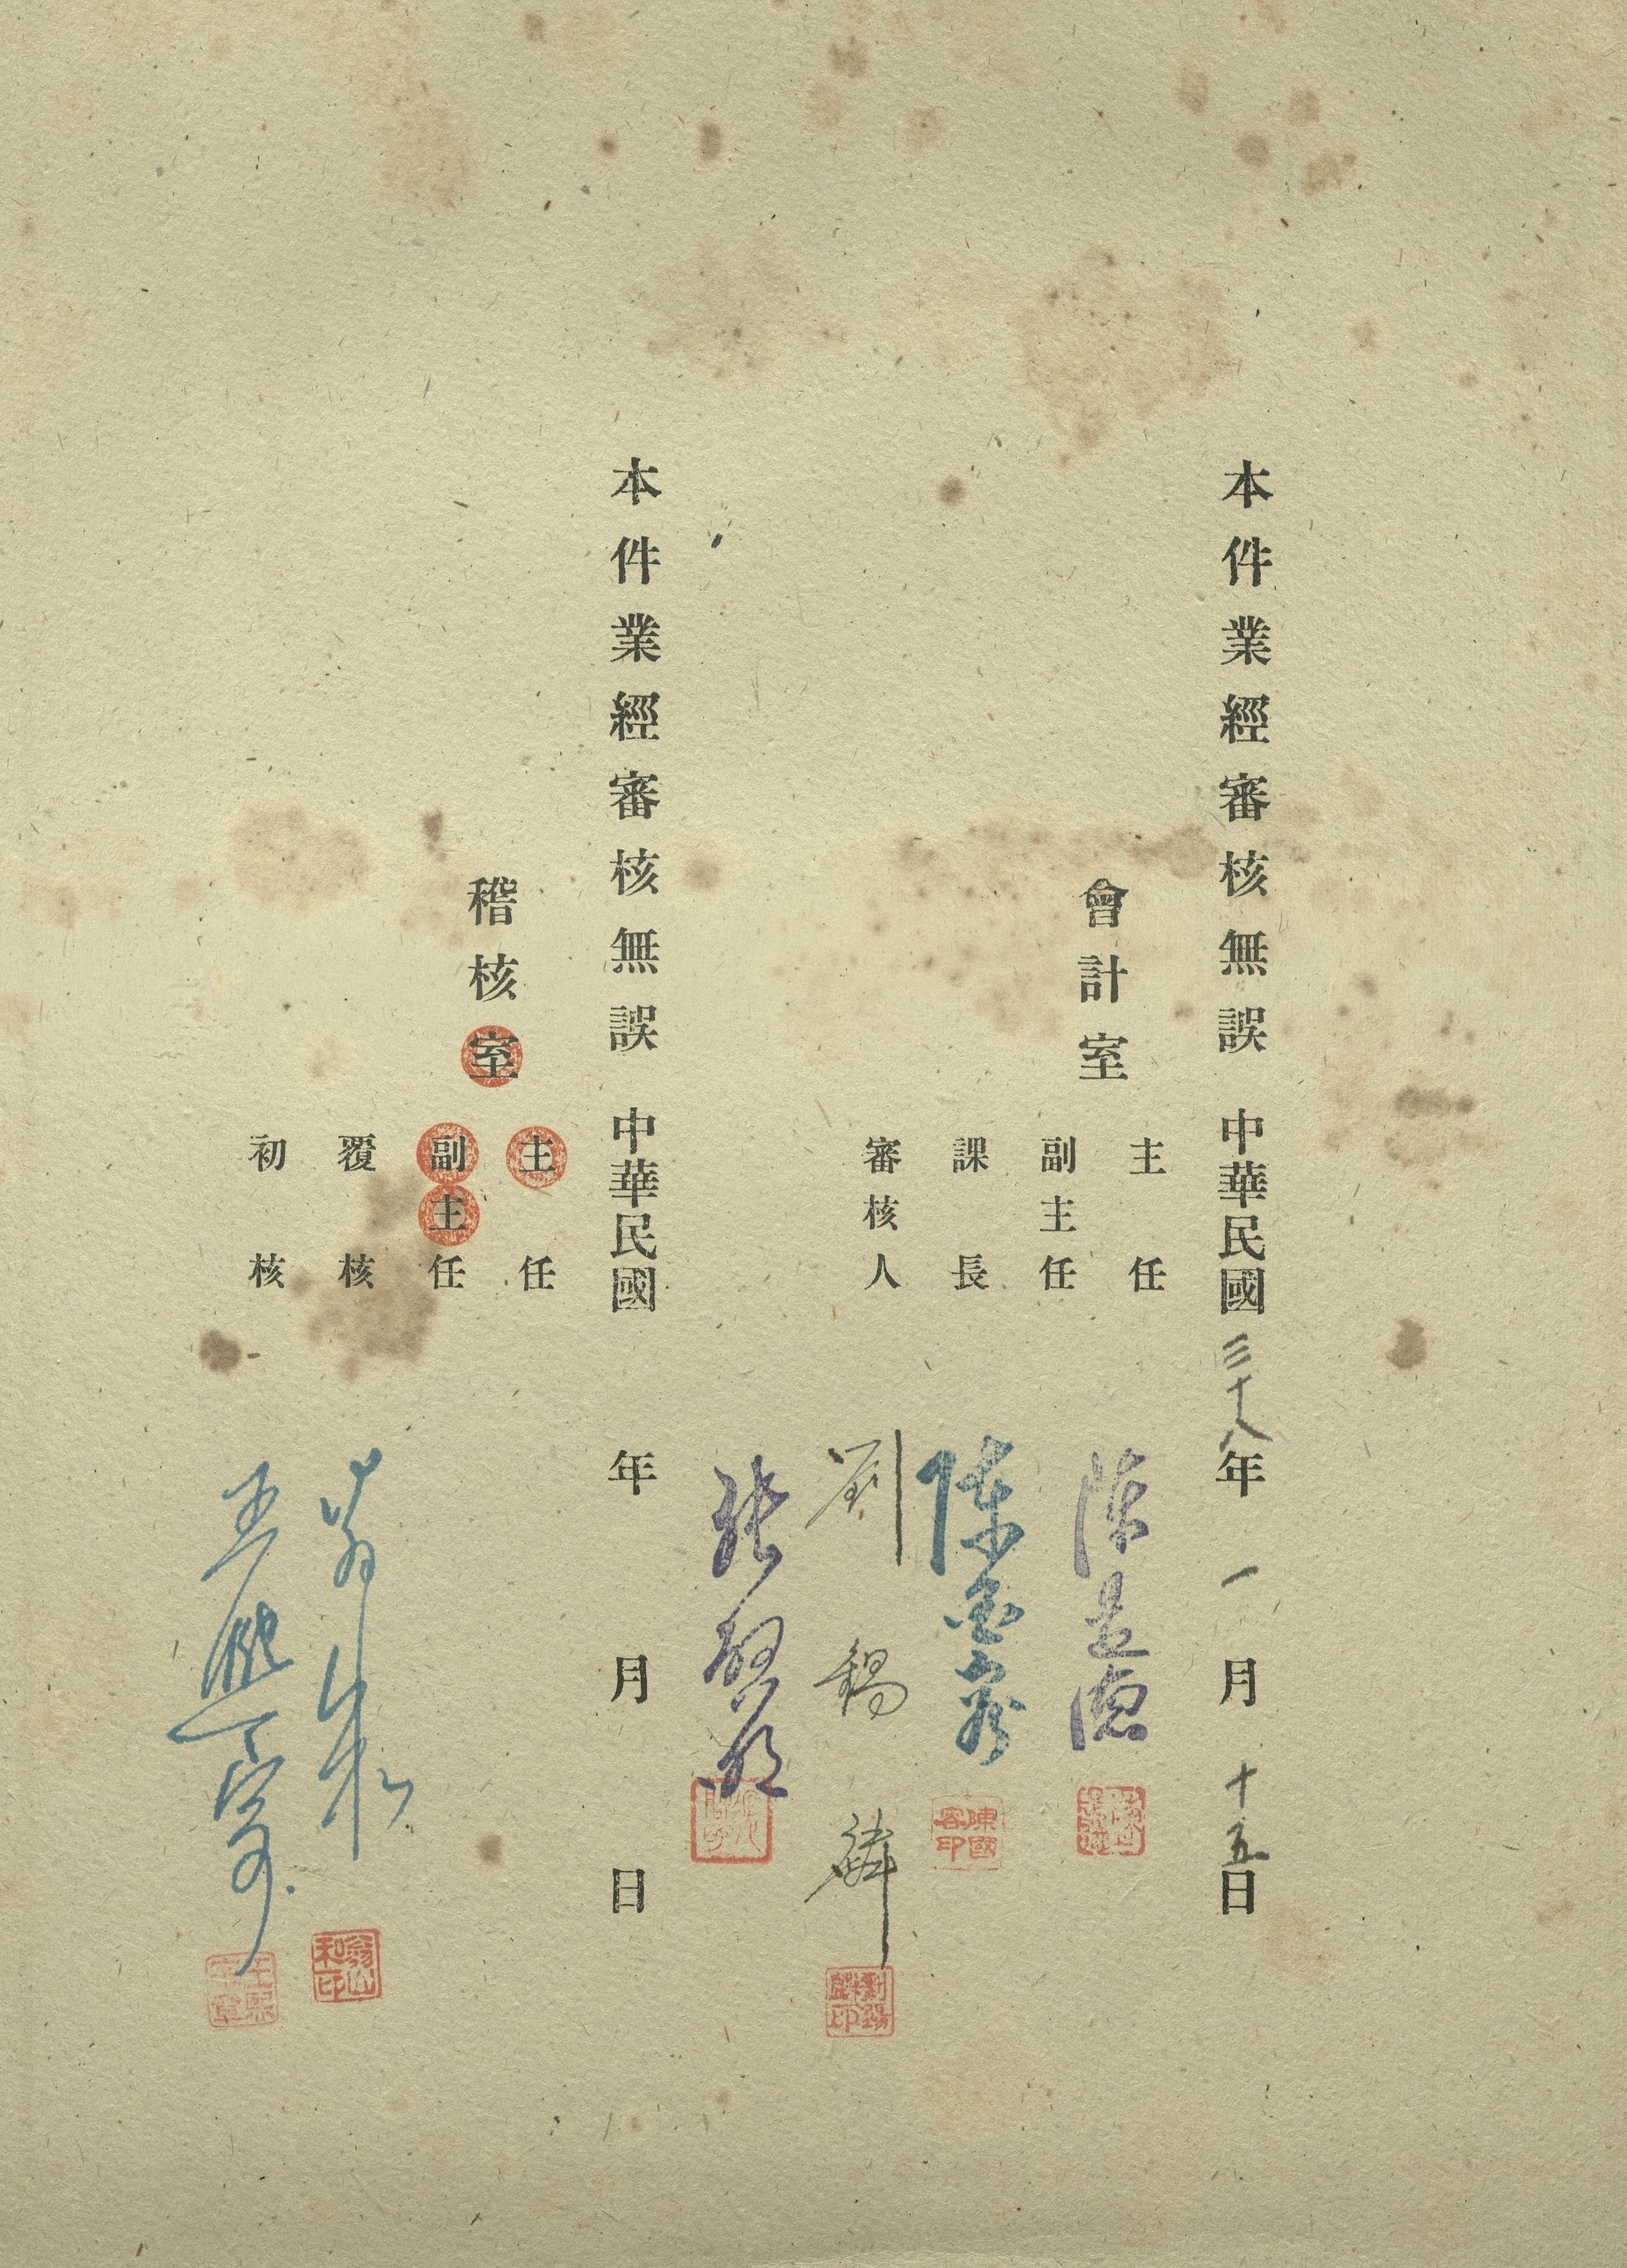 本件業經審核無誤 中華民國三十八年一月十五日
會計室
主任
副主任
課長
審核人
陳
陳國容
陳國容印
劉錫麟
劉錫麟印
張
本件業經審核無誤 中華民國 年 月 日
稽核室
主任
副主任
覆核
初核
翁山和
翁山和印
王熙寧
王熙寧章